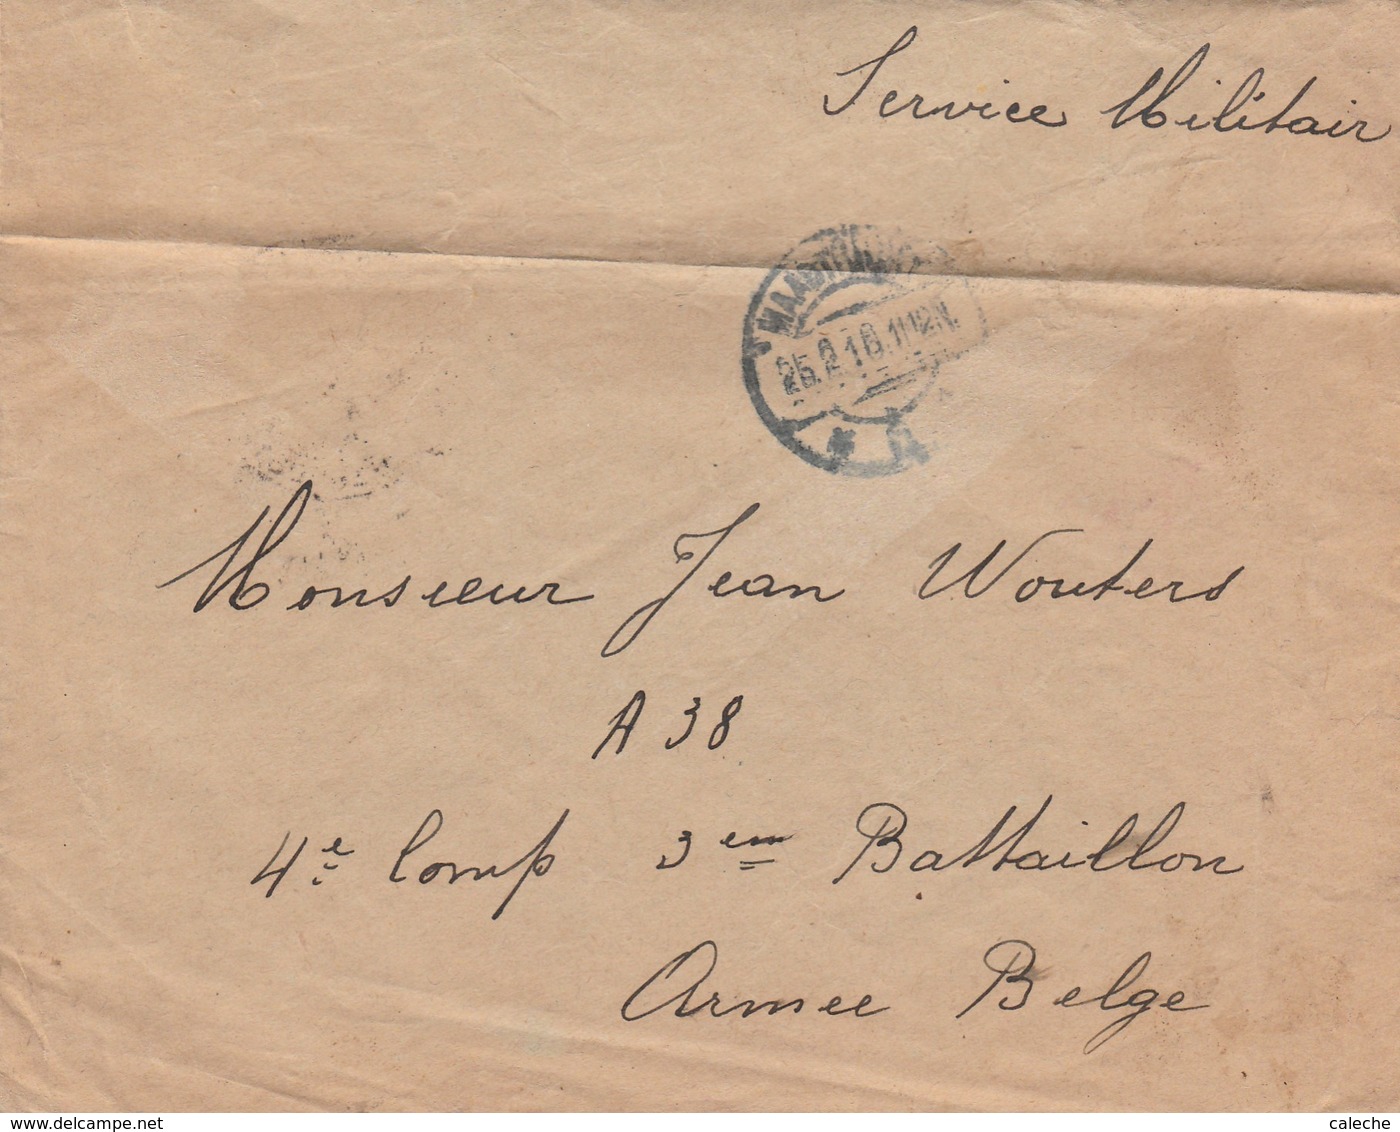 Service Militair
25.2.16.11-12N.
Monsieur Jean Wouters
A 38
4e Comp 3em Battaillon
Armee Belge
www.delcampe.net
caleche